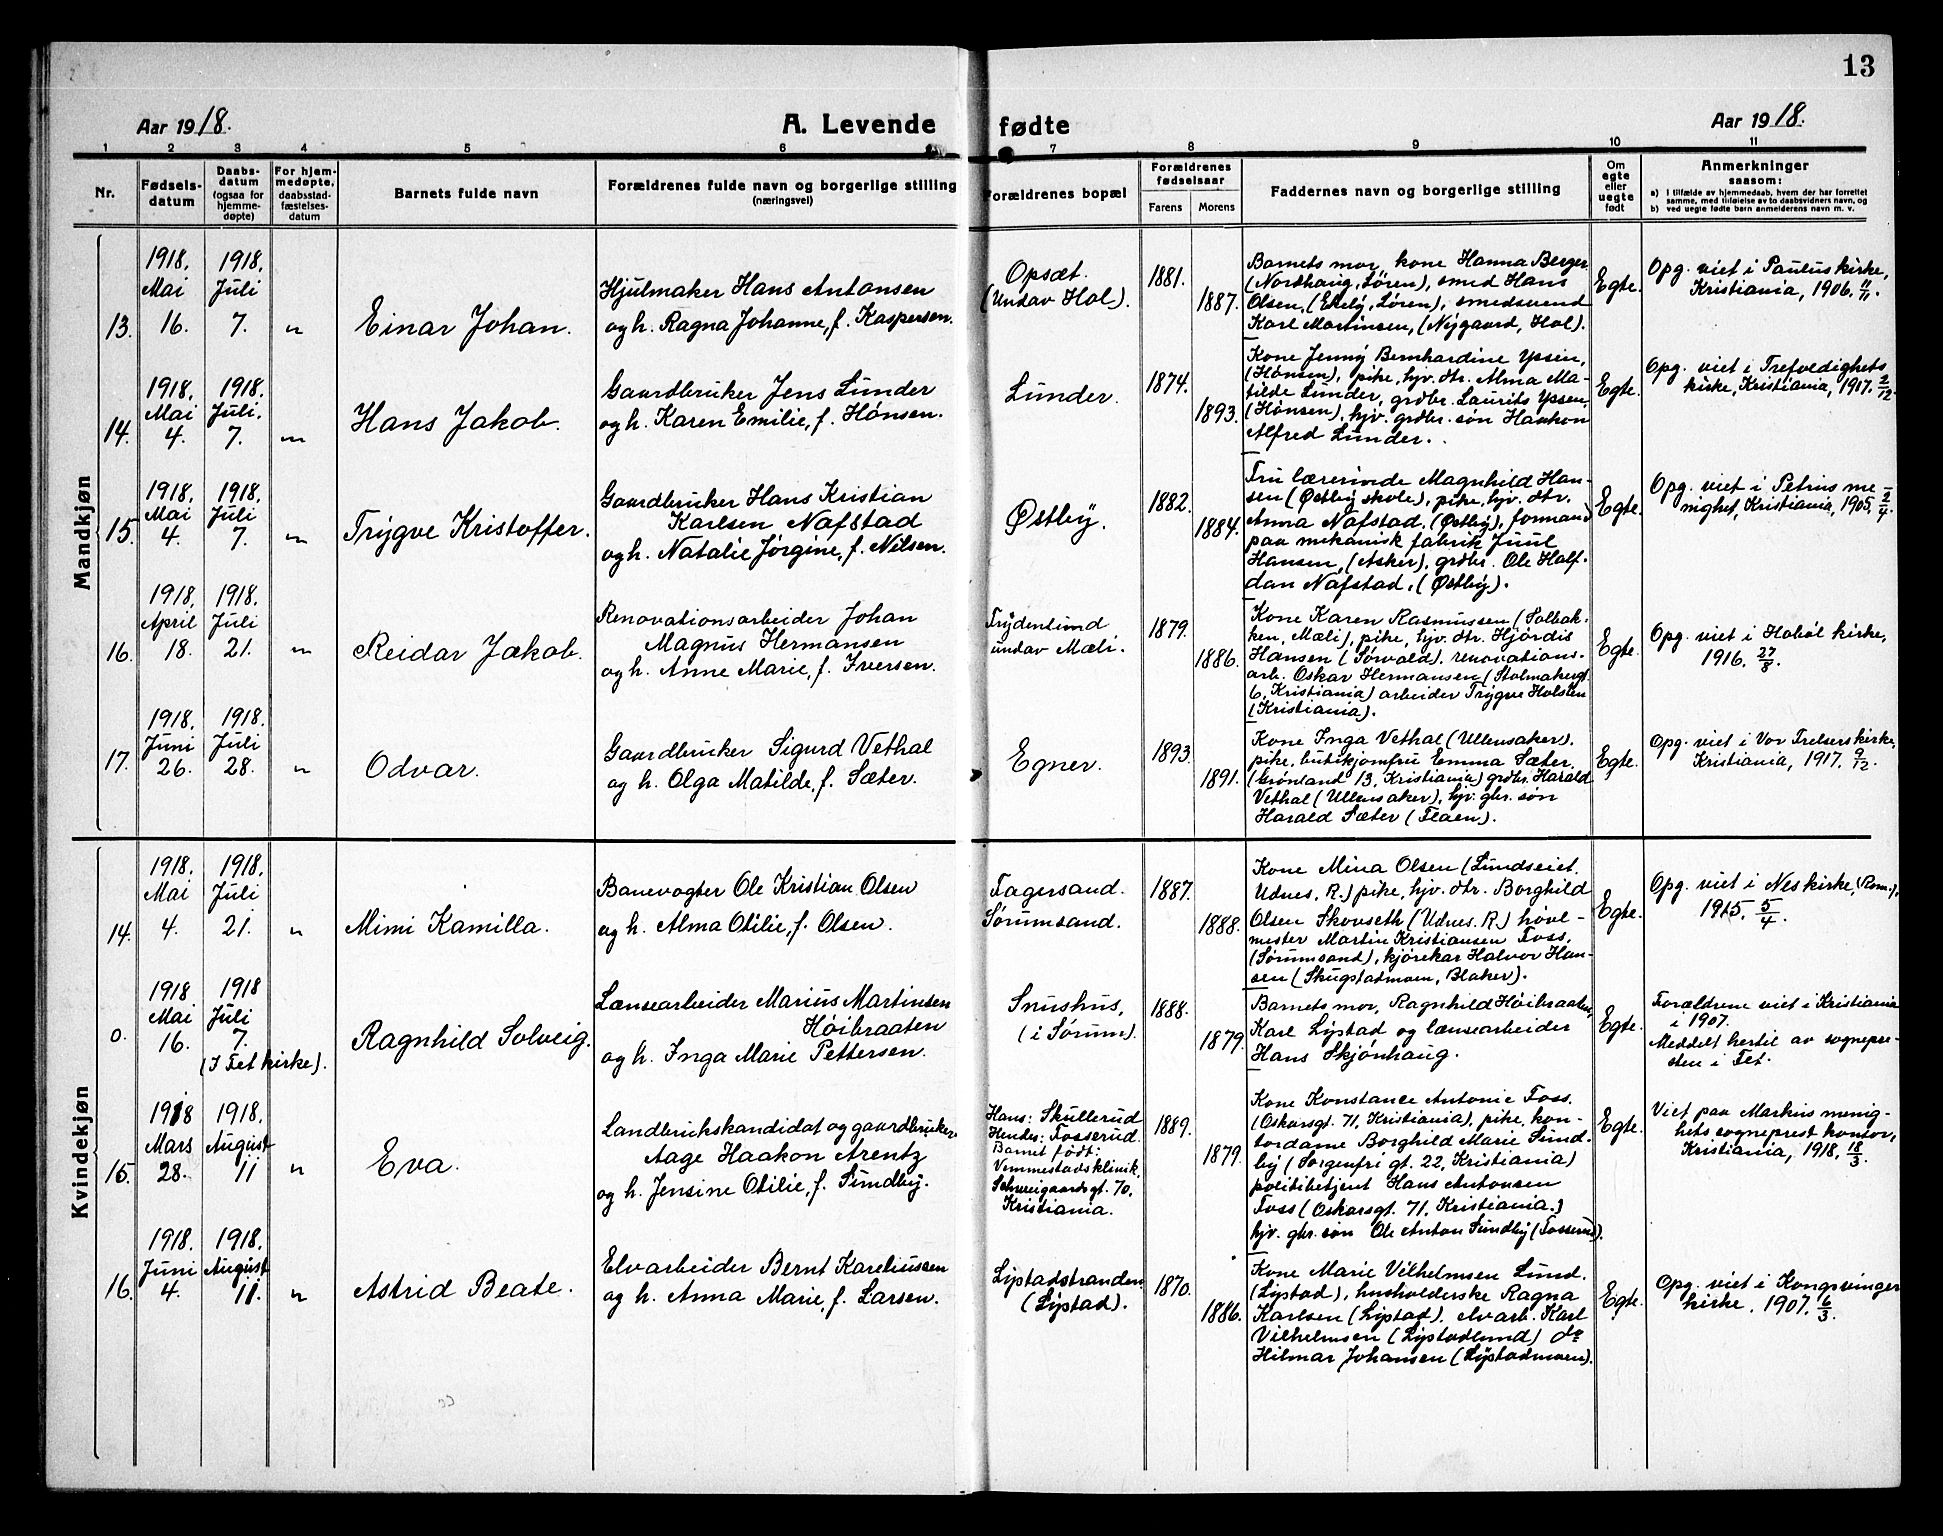 13
Aar 1918.
A. Levende fødte
Aar 1918.
1 2 3 4 5 6 7 8 9 10 11
Nr.
Fødsels-
datum
Daabs-
datum
(ogsaa for
hjemme-
døpte)
For hjem-
medøpte,
daabsstad-
fæstelses-
datum
Barnets fulde navn
Forældrenes fulde navn og borgerlige stilling
(næringsvei)
Forældrenes bopæl
Forældrenes
fødselsaar
Farens
Morens
Faddernes navn og borgerlige stilling
Om
egte
eller
uegte
født
Anmerkninger
saasom:
a) I tilfælde av hjemmedaab, hvem der har forrettet
samme, med tilføielse av to daabsvidners navn, og
b) ved uegte fødte barn anmelderens navn m. v.
Mandkjøn
13.
1918.
Mai
16.
1918.
Juli
7.
"
Einar Johan.
Hjulmaker Hans Antonsen
og h. Ragna Johanne, f. Kaspersen.
Opsæt.
(Undav Hol).
1881.
1887.
Barnets mor, kone Hanna Berger
(Nordhaug, Løren), smed Hans
Olsen, (Ekely, Løren), smedsvend
Karl Martinsen, (Nygaard, Hol).
Egte.
Opg. viet i Paulus kirke,
Kristiania, 1906. 11/11.
14.
1918.
Mai
4.
1918.
Juli.
7.
"
Hans Jakob.
Gaardbruker Jens Lunder
og h. Karen Emilie, f. Hønsen.
Lunder.
1874.
1893.
Kone Jenny Bernhardine Yssen,
(Hønsen), pike, hjv. dtr. Alma Ma-
tilde Lunder, grdbr. Laurits Yssen,
(Hønsen), hjv. grdbr. søn Haakon
Alfred Lunder.
Egte.
Opg. viet i Trefoldighets
kirke, Kristiania, 1917. 2/12.
15.
1918.
Mai
4.
1918.
Juli
7.
"
Trygve Kristoffer.
Gaardbruker Hans Kristian
Karlsen Nafstad
og h. Natalie Jørgine, f. Nilsen.
Østby.
1882.
1884.
Fru lærerinde Magnhild Han-
sen (Østby skole), pike, hjv. dtr.
Anna Nafstad, (Østby), formand
paa mekanisk fabrik Juul
Hansen, (Asker), grdbr. Ole Half-
dan Nafstad, (Østby).
Egte.
Opg. viet i Petrus me-
nighet, Kristiania, 1905. 2/4.
16.
1918.
April
18.
1918.
Juli
21.
"
Reidar Jakob.
Renovationsarbeider Johan
Magnus Hermansen
og h. Anne Marie, f. Iversen.
Frydenlund
undav Mæli.
1879.
1886.
Kone Karen Rasmussen (Solbak-
ken, Mæli), pike, hjv. dtr. Hjördis
Hansen (Sørvald). renovations-
arb. Oskar Hermansen (Stolmakergt.
6, Kristiania) arbeider Trygve Holsten
(Kristiania).
Egte.
Opg. viet i Hobøl kirke,
1916. 27/8.
17.
1918.
Juni
26.
1918.
Juli
28.
"
Odvar.
Gaardbruker Sigurd Vethal
og h. Olga Matilde, f. Sæter.
Egner.
1893.
1891.
Kone Inga Vethal (Ullensaker).
pike, butikjomfru Emma Sæter,
(Grønland 13, Kristiania) grdbr. Harald
Vethal (Ullensaker), hjv. gbr. søn
Harald Sæter (Flaen).
Egte.
Opg. viet i Vor Frelsers kirke,
Kristiania, 1917. 9/12.
Kvindekjøn
14.
1918.
Mai
4.
1918.
Juli
21.
"
Mimi Kamilla.
Banevogter Ole Kristian Olsen
og h. Alma Otilie, f. Olsen.
Fagersand.
Sørumsand.
1887.
1888.
Kone Mina Olsen (Lundseiet.
Udnes, R.) pike, hjv. dtr. Borghild
Olsen Skovseth (Udnes. R.) høvl-
mester Martin Kristiansen Foss,
(Sørumsand), kjørekar Halvor Han-
sen (Skugstadmoen, Blaker).
Egte.
Opg. viet i Nes kirke, (Rom.),
1915. 5/4
0.
1918
Mai
16.
1918
Juli
7.
(I Fet kirke).
Ragnhild Solveig.
Lænsearbeider Marius Martinsen
Høibraaten
og h. Inga Marie Pettersen.
Snushus,
(i Sørum).
1888.
1879.
Barnets mor, Ragnhild Høibraaten,
Karl Lystad og lænsearbeider
Hans Skjønhaug.
Egte.
Forældrene viet i Kristiania
i 1907.
Meddelt hertil av sognepre-
sten i Fet.
15.
1918
Mars
28.
1918.
August
11
"
Eva.
Landbrukskandidat og gaardbruker
Aage Haakon Arentz
og h. Jensine Otilie, f. Sundby.
Hans: Skullerud
Hendes: Fosserud.
Barnet født:
Vemmestadsklinik,
Schweigaardsgt. 70,
Kristiania.
1889.
1879.
Kone Konstance Antonie Foss.
(Oskarsgt. 71, Kristiania), pike, kon-
tordame Borghild Marie Sund-
by (Sorgenfri gt. 22, Kristiania)
politibetjent Hans Antonsen
Foss (Oskarsgt. 71, Kristiania.)
hjv. gbr. søn Ole Anton Sundby (Fosserud).
Egte.
Viet paa Markus menig-
hets sogneprest kontor,
Kristiania, 1918, 18/3.
16.
1918.
Juni
4.
1918.
August
11.
"
Astrid Beate.
Elvarbeider Bernt Kareliussen
og h. Anna Marie, f. Larsen.
Lystadstranden
(Lystad).
1870.
1886.
Kone Marie Vilhelmsen Lund.
(Lystad), husholderske Ragna
Karlsen (Lystad), elvarb. Karl
Vilhelmsen (Lystadlund) do
Hilmar Johansen (Lystadmoen).
Egte.
Opg. viet i Kongsvinger
kirke, 1907, 6/3.